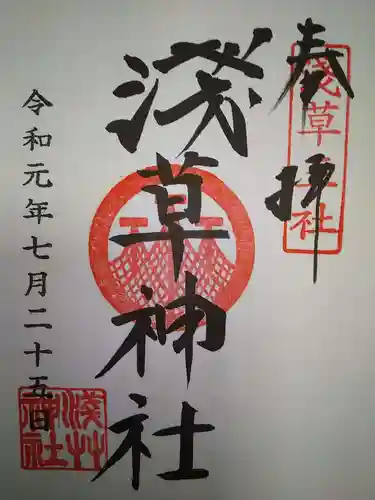 奉拝
淺草神社
淺草神社
令和元年七月二十五日
淺草神社